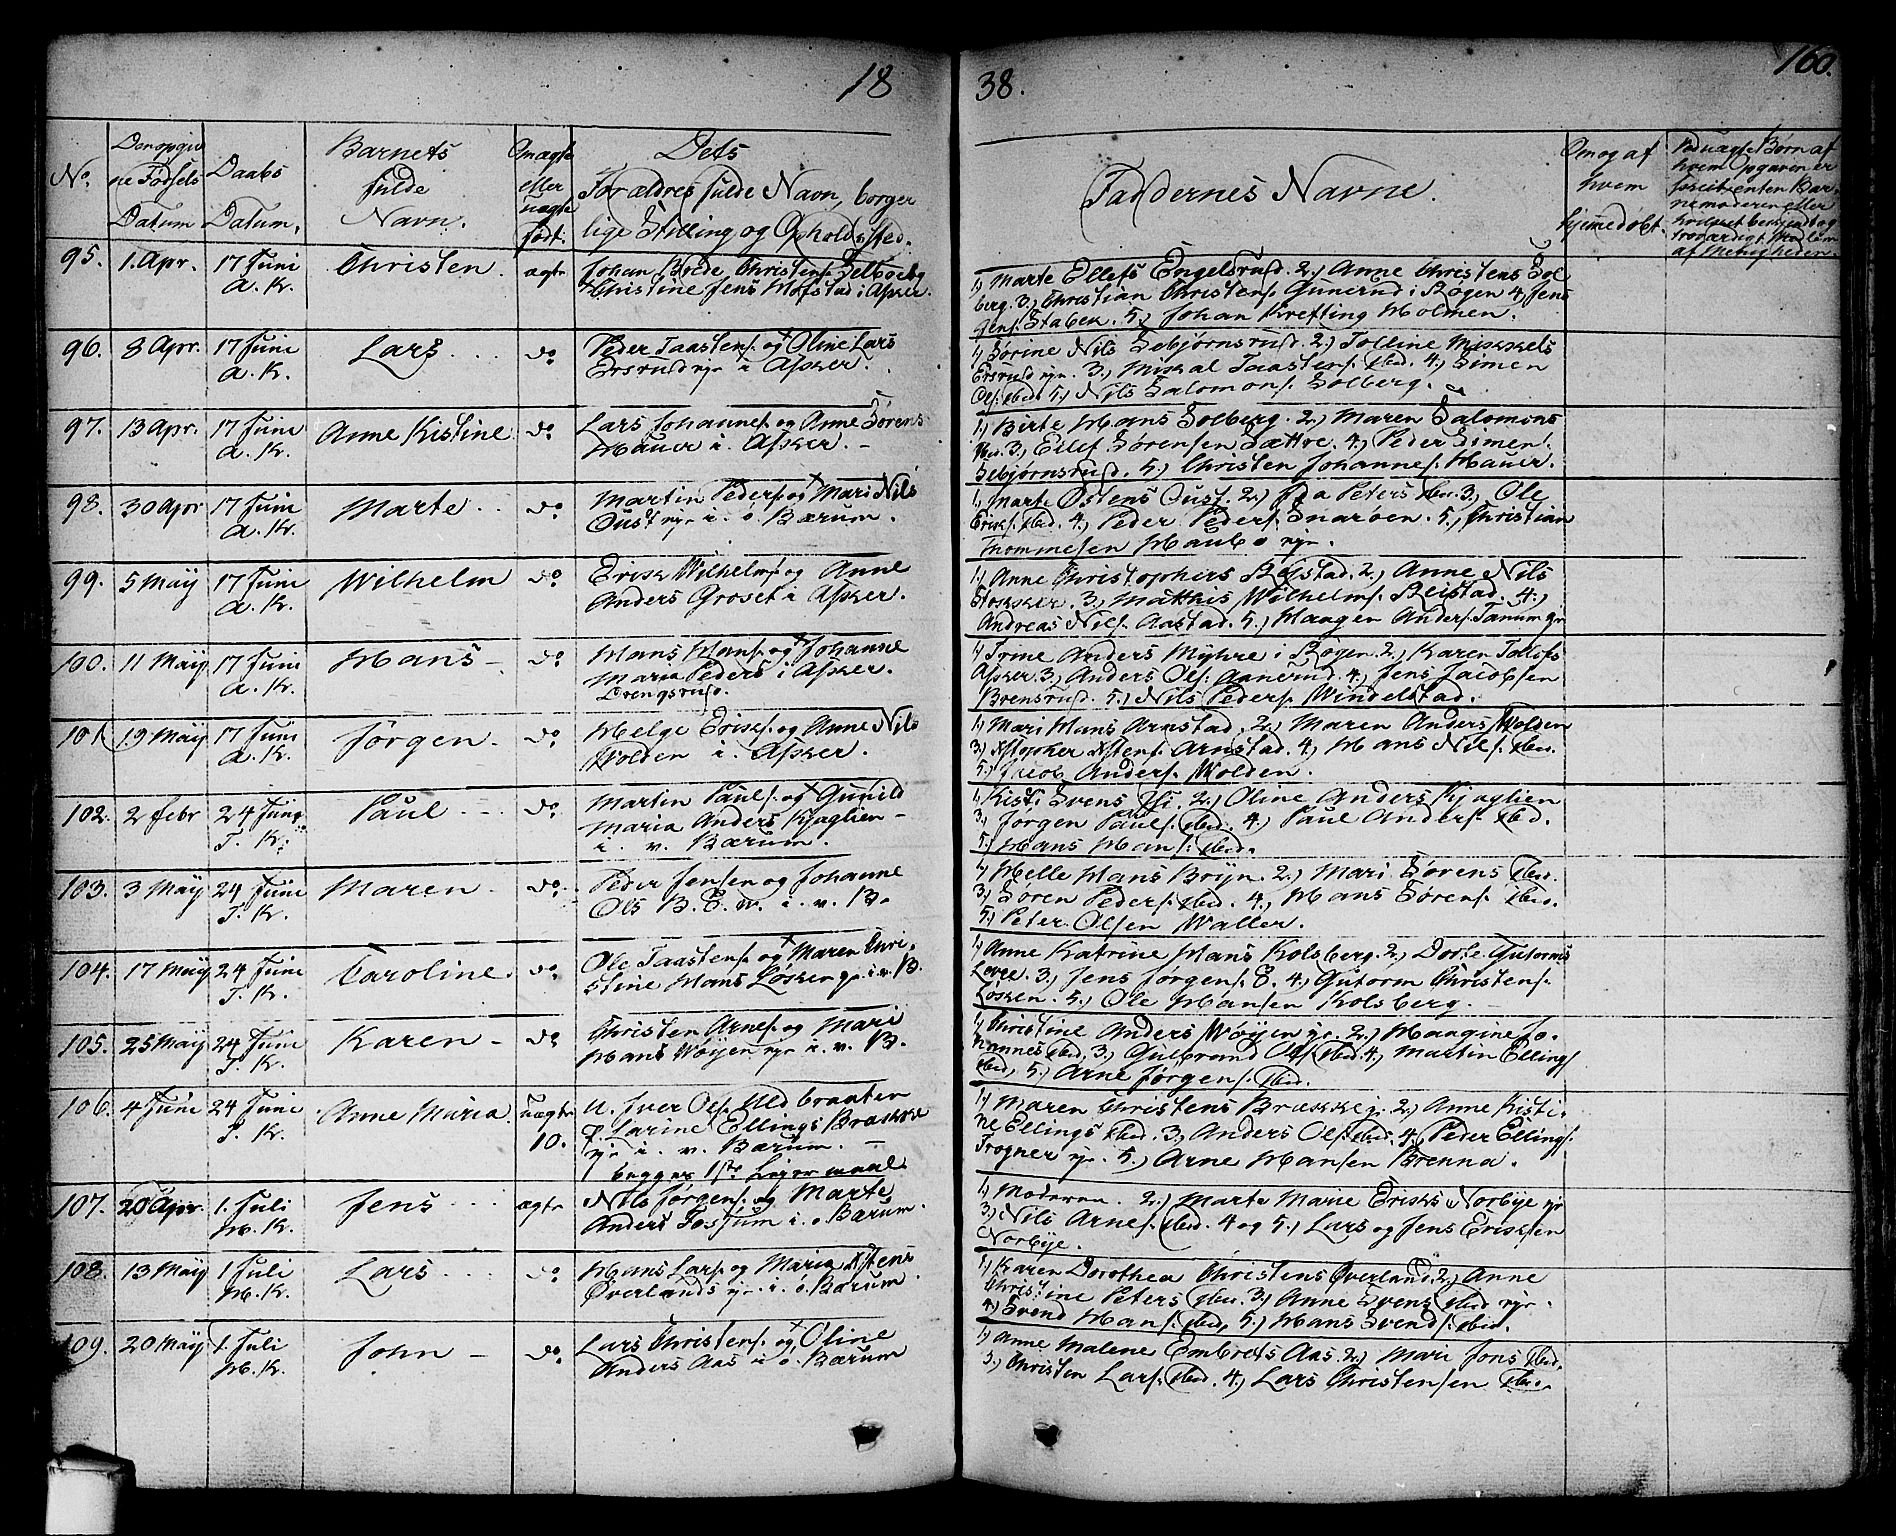 18 38. 160.
No. Den opgiv Daabs Barnets Omægte Dets
ne Fødsels Datum. fulde eller Forældres fulde Navn, borger
Datum Navn. uægte lige Stilling og Opholdssted.
født.
Faddernes Navne.
Om og af
hvem
hjemmedøbt.
hvem Opgaven er
af Menigheden.
95. 1. Apr. 17 Juni Christen. ægte Johan Brede Christens.
A. K. Christine Jens Hofstad i Asker.
1, Marte Ellefs Engelsrud. 2, Anne Christens Sol
berg. 3, Christian Christens. Gunerud i Røgen 4, Jens
Jens. Stabek. 5, Johan Krefting Holmen.
96. 8 Apr. 17 Juni Lars. do Peder Taastens. og Oline Lars
A. K. Ersrud rye i Asker.
1, Sørine Nils Sebjørnsrud. 2, Tolline Mikkels
Ersrud rye. 3, Mikkal Taastens. ibid. 4, Simen
Ols. ibid. 5, Nils Salomons. Solberg.
97. 13 Apr. 17 Juni Anne Kistine do Lars Johannes. og Anne Sørens
A. K. Hauer i Asker.
1, Birte Hans Solberg. 2, Maren Salomons
ibid. 3, Ellef Sørensen Sættre. 4, Peder Simens.
Sebjørnsrud. 5, Christen Johannes. Hauer.
98. 30 Apr 17 Juni Marte do Martin Peders. og Mari Nils
A. K. Oust rye i ø. Bærum.
1, Marte Ostens Oust. 2, Ida Peters ibid. 3, Ole
Eriks. ibid. 4, Peder Peders. Snarøen. 5, Christian
Trommesen rye.
99. 5 May 17 Juni Wilhelm do Erik Wilhelms. og Anne
A. K. Anders Groset i Asker.
1, Anne Christophers Reistad. 2, Anne Nils
Stokker. 3, Matthis Wilhelms. Reistad. 4,
Andreas Nils. Aastad. 5, Haagen Anders. Tanum gr
100. 11 May 17 Juni Hans do Hans Hans. og Johanne
A. K. Maria Peders i Asker.
Drengsrud.
1, Trine Anders Myhre i Røgen. 2, Karen
Asker 3, Anders Ols. Aanerud. 4, Jens Jacobsen
Brensrud. 5, Nils Peders. Windelstad.
101. 19 May 17 Juni Jørgen. do Helge Eriks. og Anne Nils
A. K. Wolden i Asker.
1, Mari Hans Arnstad. 2, Maren Anders Wolden
3, Arnstad. 4, Hans Nils. ibid.
5, Jacob Anders. Wolden.
102. 2 Febr 24 Juni Paul do Martin Pauls. og Gunild
T. K. Maria Anders Kjaglien
i v. Bærum.
1, Svens 2, Oline Anders Kjaglien
3, Jørgen Pauls. ibid. 4, Paul Anders. ibid.
5, Hans Hans. ibid.
103. 3 May 24 Juni Maren do Peder Jensen og Johanne
T. K. Ols B. E. v. i v. B.
1, Helle Hans Bryn. 2, Mari Sørens ibid.
3, Søren Peders. ibid. 4, Hans Sørens. ibid.
5, Peter Olsen Waller.
104. 17 May 24 Juni Caroline. do Ole Taastens. og Maren Chri-
T. K. stine Hans Løsker i v. B.
1, Anne Katrine Hans Kolsberg. 2, Dorte Gutorms
3, Jens Jørgens. E. 4, Gutorm Christens.
Løsken. 5, Ole Hansen Kolsberg.
105. 25 May 24 Juni Karen do Christen Arnes. og Mari
T. K. Hans Wøyen rye i v. B.
1, Christine Anders Wøyen rye. 2, Haagine Jo-
hannes ibid. 3, Gulbrand Ols. ibid. 4, Martin Ellings
ibid, 5, Arne Jørgens. ibid.
106. 4 Juni 24 Juni Anne Maria. uægte U. Iver Ols. Nedbraaten
T. K. 10. P. Larine Ellings Brække
rye i v. Bærum.
begges 1ste Lejermaal.
1, Maren Christens Brække j. 2, Anne Kisti-
ne Ellings ibid. 3, Anders Ols. ibid. 4, Peder Ellings.
Frogner rye. 5, Arne Hansen Brenna.
107. 20 Apr. 1. Juli Jens ægte Nils Jørgens. og Marte
H. K. Anders Fossum i ø Bærum.
1, Moderen. 2, Marte Marie Eriks Norbye rye
3, Nils Arnes. ibid. 4 og 5, Lars og Jens Erissen
Norbye.
108. 13 May 1 Juli Lars do Hans Lars. og Maria
H. K. Øverlands rye i ø. Bærum.
1, Karen Dorothea Christens Øverland. 2, Anne
Christine Peters ibid. 3, Anne Svens ibid rye.
4, Svend Hans. ibid. 5, Hans Svends. ibid.
109. 20 May 1. Juli John do Lars Christens. og Oline
H. K. Anders Aas i ø Bærum
1, Anne Malene Embrets Aas. 2, Mari Jons ibid.
3, Christen Lars. ibid. 4, Lars Christensen ibid.